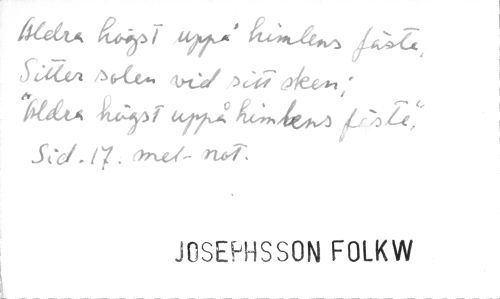 Aldra högst uppå himlens fäste,
Sitter solen vid sitt sken;
"Aldra högst uppå himlens fäste",
Sid. 17. mel-not.
JOSEPHSSON FOLKW